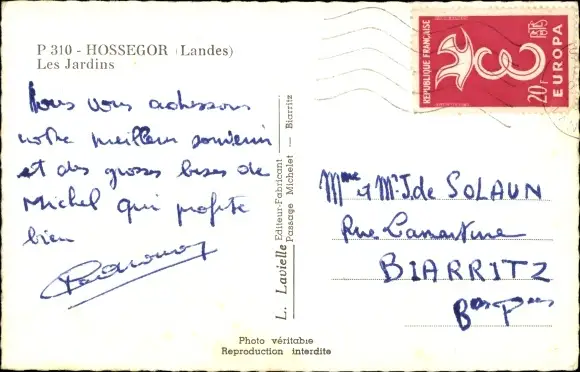 P 310 - HOSSEGOR (Landes)
Les Jardins
Nous vous adressons
notre meilleur souvenir
et des grosses bises de
Michel qui profite
bien
L. Lavielle Editeur-Fabricant
Passage Michelet — Biarritz
REPUBLIQUE FRANÇAISE
20F
EUROPA
Mme et Mr J. de SOLAUN
Rue Lamartine
BIARRITZ
Bses Pées
Photo véritable
Reproduction interdite